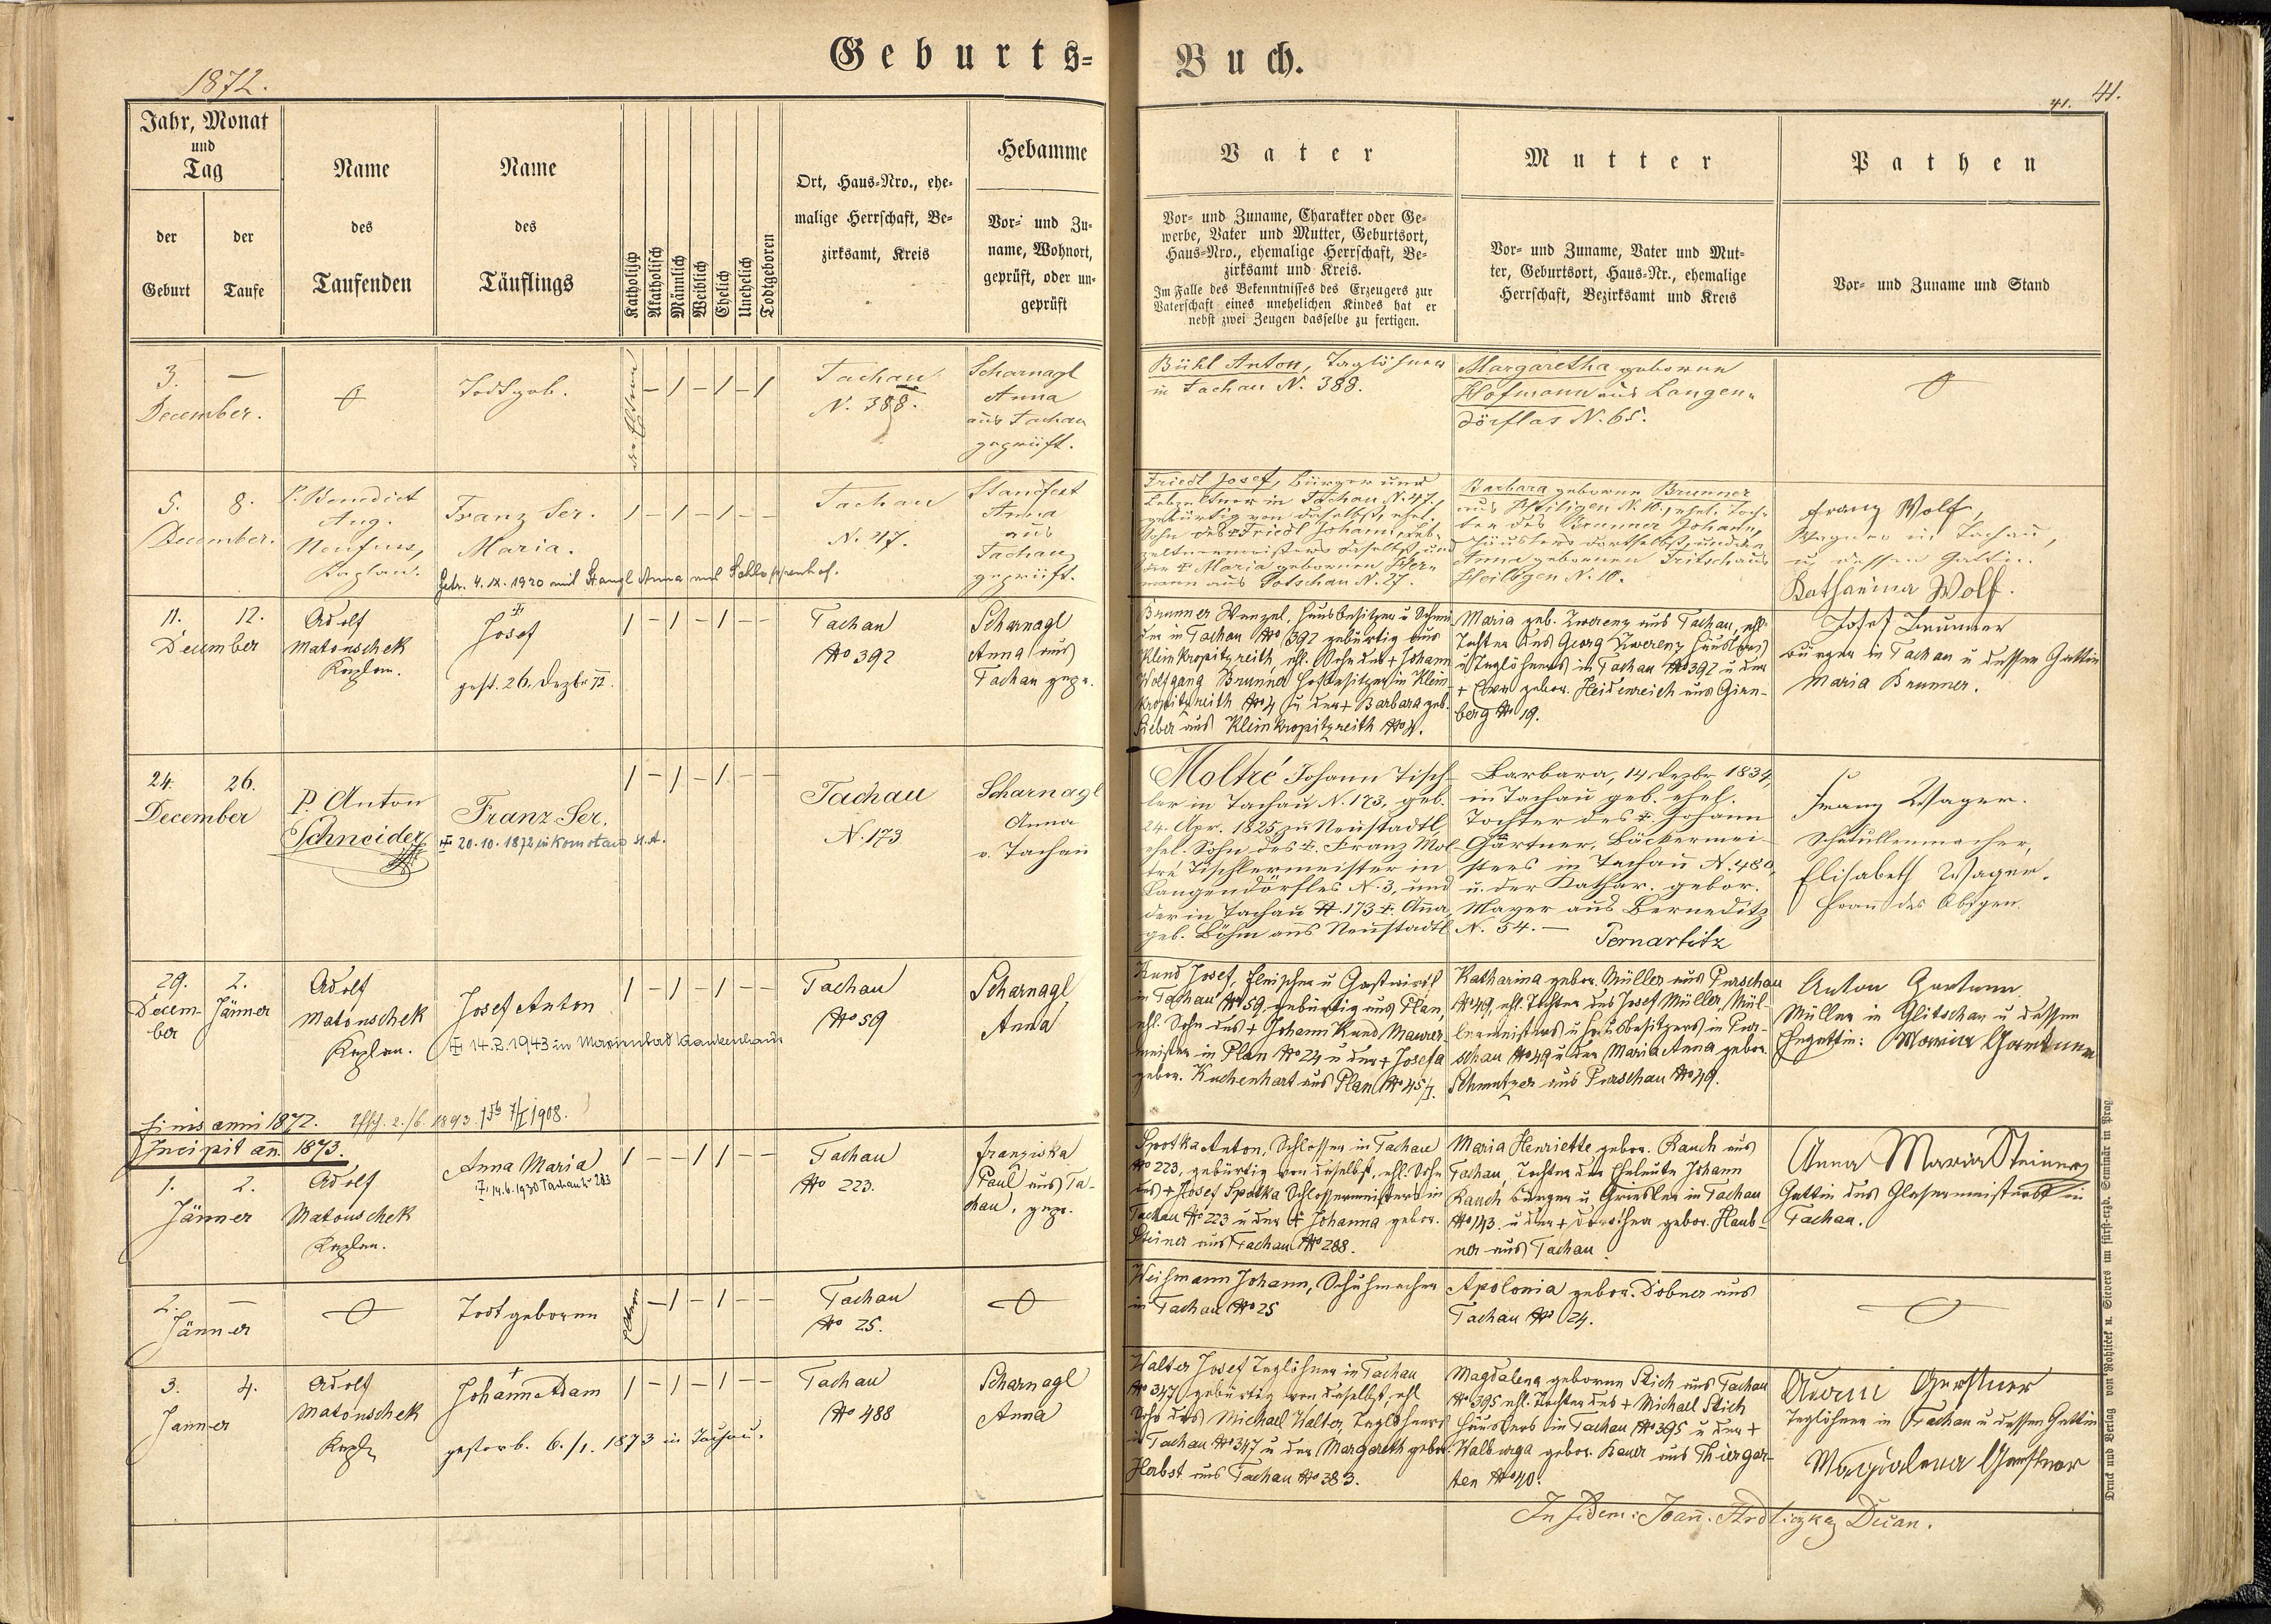 Geburts-Buch.
1872.
41. 41.
Jahr, Monat
und
Tag
der
Geburt
der
Taufe
Name
des
Taufenden
Name
des
Täuflings
Katholisch
Akatholisch
Männlich
Weiblich
Ehelich
Unehelich
Todtgeboren
Ort, Haus-Nro., ehe-
malige Herrschaft, Be-
zirksamt, Kreis
Hebamme
Vor- und Zu-
name, Wohnort,
geprüft, oder un-
geprüft
Vater
Vor- und Zuname, Charakter oder Ge-
werbe, Vater und Mutter, Geburtsort,
Haus-Nro., ehemalige Herrschaft, Be-
zirksamt und Kreis.
Im Falle des Bekenntnisses des Erzeugers zur
Vaterschaft eines unehelichen Kindes hat er
nebst zwei Zeugen dasselbe zu fertigen.
Mutter
Vor- und Zuname, Vater und Mut-
ter, Geburtsort, Haus-Nr., ehemalige
Herrschaft, Bezirksamt und Kreis
Pathen
Vor- und Zuname und Stand
3. —
December.
Todtgeb.
Tachau
N. 388.
Scharnagl
Anna
aus Tachau
geprüft.
Bühl Anton, Taglöhner
in Tachau N. 388.
Margaretha geborene
Hofmann aus Langen-
dörflas N. 65.
5. 8.
December.
P. Benedict
Aug.
Kaplan.
Franz Ser.
Maria.
Getr. 4. IX. 1920 mit Stangl Anna aus
Tachau
N. 47.
Standfest
Anna
aus
Tachau
geprüft.
Friedl Josef, Bürger und
Lebzeltner in Tachau N. 47.,
gebürtig von daselbst, ehel.
Sohn des + Friedl Johann, Leb-
zeltnermeisters daselbst, und
der + Maria gebornen Her-
mann aus Potschau N. 27.
Barbara geborene Brunner
aus Heiligen N. 10., ehel. Toch-
ter des Brunner Johann,
Häuslers dortselbst, und der
Anna gebornen Fritsch aus
Heiligen N. 10.
Franz Wolf,
Wagner in Tachau,
u. dessen Gattin
Katharina Wolf.
11. 12.
December
Adolf
Matouschek
Kaplan.
Josef
gest. 26. Dezbr 72.
Tachau
No 392
Scharnagl
Anna aus
Tachau gepr.
Brunner Wenzel, Hausbesitzer u Schnei-
der in Tachau No 392 gebürtig aus
Kleinkropitzreith, ehl. Sohn des + Johann
Wolfgang Brunner Hofbesitzer in Klein-
kropitzreith No 4 u der + Barbara geb.
Sieber aus Kleinkropitzreith No 4.
Maria geb. Zwerenz aus Tachau, ehl.
Tochter des Georg Zwerenz Häuslers
u Taglöhners in Tachau No 392 u der
+ Eva gebor. Heidenreich aus Girn-
berg No 19.
Josef Brunner
Bürger in Tachau u dessen Gattin
Maria Brunner.
24. 26.
December
P. Anton
Schneider
Franz Ser.
20.10.1872 in Komotau
Tachau
N. 173
Scharnagl
Anna
v. Tachau
Moltré Johann Tisch-
ler in Tachau N. 173, geb.
24. Apr. 1825 zu Neustadtl,
ehel. Sohn des +. Franz Mol-
tré Tischlermeister in
Langendörfles N. 3, und
der in Tachau N. 173 +. Anna,
geb. Böhm aus Neustadtl
Barbara, 14 Dezbr 1834,
in Tachau geb. ehel.
Tochter des +. Johann
Gärtner, Bäckermei-
sters in Tachau N. 480,
u. der Kathar. gebor.
Mayer aus Berneditz
N. 54. — Pernartitz
Franz Wager.
Schatullenmacher,
Elisabeth Wager.
Frau des Obigen.
29. 2.
Decem- Jänner
ber
Adolf
Matouschek
Kaplan.
Josef Anton
14.2.1943 in Marienbad Krankenhaus
Tachau
No 59
Scharnagl
Anna
Kund Josef, Fleischer u Gastwirth
in Tachau No 59, gebürtig aus Plan,
ehl. Sohn des + Johann Kund Maurer-
meister in Plan No 24 u der + Josefa
gebor. Kuchenhart aus Plan No 45/1.
Katharina gebor. Müller aus Purschau
No 49, ehl. Tochter des Josef Müller, Mül-
lermeisters u Hausbesitzers in Pur-
schau No 49 u der Maria Anna gebor.
Schmutzer aus Purschau No 49.
Anton Gartner
Müller in Glitschau u dessen
Ehegattin: Maria Gartner
Finis anni 1872.
2./6. 1893. 7/I 1908.
Incipit an. 1873.
1. 2.
Jänner
Adolf
Matouschek
Kaplan.
Anna Maria
14.6.1930 Tachau N 283
Tachau
No 223.
Franziska
Paul aus Ta-
chau, gepr.
Spotka Anton, Schlosser in Tachau
No 223, gebürtig von daselbst, ehl. Sohn
des + Josef Spotka Schlossermeisters in
Tachau No 223 u der + Johanna gebor.
Steiner aus Tachau No 288.
Maria Henriette gebor. Rauch aus
Tachau, Tochter der Eheleute Johann
Rauch Bürger u Griesler in Tachau
No 143 u der + Dorothea gebor. Haub-
ner aus Tachau.
Anna Maria Steiner
Gattin des Glasermeisters in
Tachau.
2. —
Jänner
Todtgeboren
Tachau
No 25.
Weißmann Johann, Schuhmacher
in Tachau No 25
Apolonia gebor. Dobner aus
Tachau No 24.
3. 4.
Jänner
Adolf
Matouschek
Kapl.
Johann Adam
gestorb. 6./1. 1873 in Tachau.
Tachau
No 488
Scharnagl
Anna
Walter Josef Taglöhner in Tachau
No 347, gebürtig von daselbst, ehl.
Sohn des Michael Walter, Taglöhners
in Tachau No 347 u der Margareth gebor.
Herbst aus Tachau No 383.
Magdalena geborene Stich aus Tachau
No 395 ehl. Tochter des + Michael Stich
Häuslers in Tachau No 395 u der +
Walburga gebor. Bauer aus Thiergar-
ten No 40.
Gerstner
Taglöhner in Tachau u dessen Gattin
Magdalena Gerstner
In fidem: Joan. Hrdliczka, Decan.
Druck und Verlag von Rohliček u. Sievers im fürst-erzb. Seminär in Prag